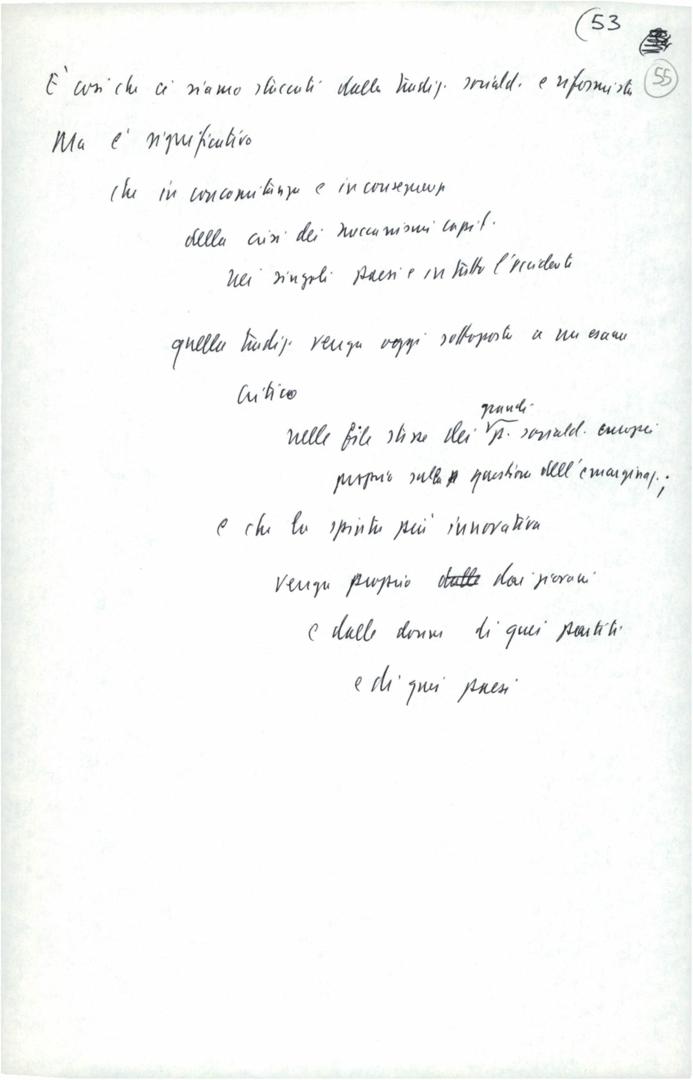 (53
55
È così che ci siamo staccati dalla tradiz. sociald. e riformista
Ma è significativo
che in concomitanza e in conseguenza
della crisi dei meccanismi capit.
nei singoli paesi e in tutto l'occidente
quella tradiz. venga oggi sottoposta a un esame
critico
grandi
nelle file stesse dei p. sociald. europei
proprio sulla questione dell'emarginaz.;
e che la spinta più innovativa
venga proprio dalle dai giovani
e dalle donne di quei partiti
e di quei paesi